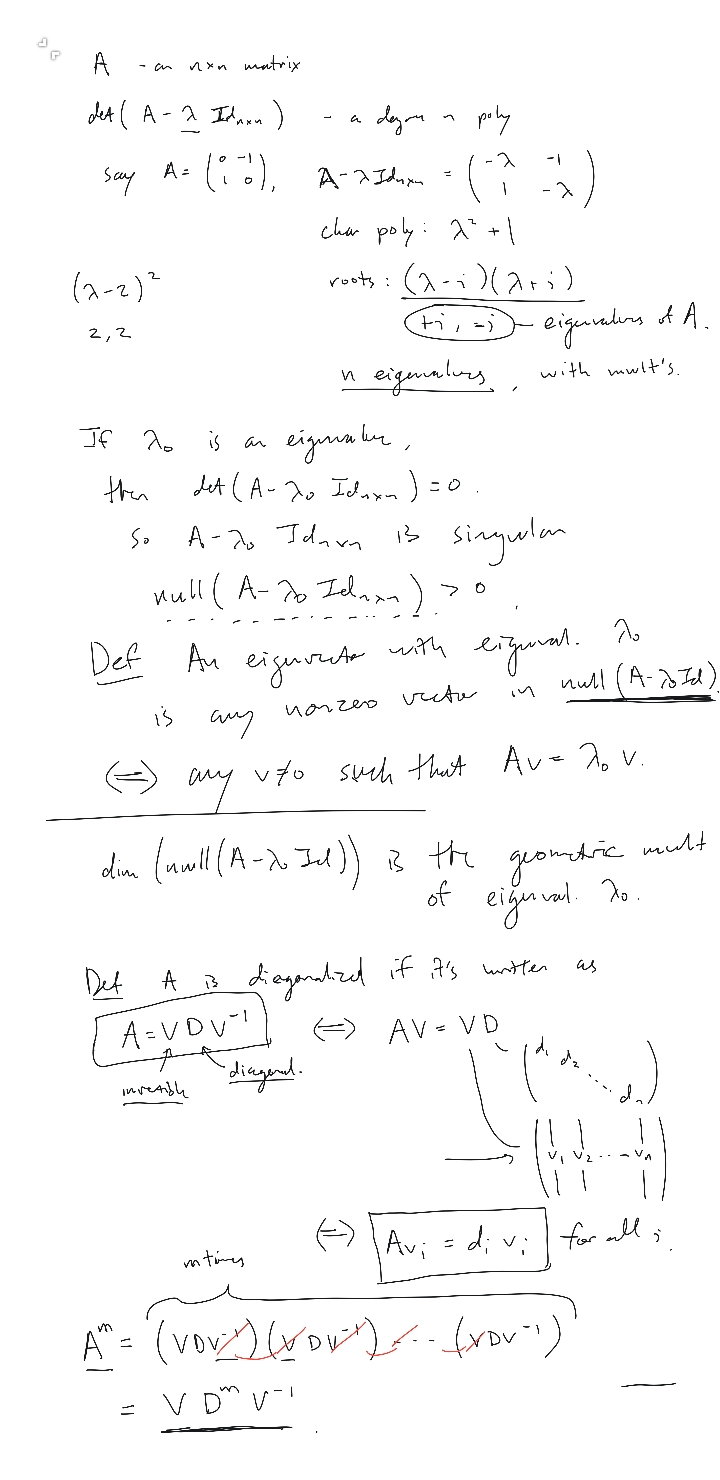 A - an n×n matrix
det(A - λ Id_{n×n}) - a degree n poly
say A = (0 -1; 1 0), A - λ Id_{n×n} = (-λ -1; 1 -λ)
char poly: λ² + 1
(λ-2)²
roots: (λ-i)(λ+i)
2,2
+i, -i - eigenvalues of A.
n eigenvalues, with mult's.
If λ₀ is an eigenvalue,
then det(A - λ₀ Id_{n×n}) = 0.
so A - λ₀ Id_{n×n} is singular
null(A - λ₀ Id_{n×n}) > 0.
Def An eigenvector with eigenval. λ₀
is any nonzero vector in null(A - λ₀ Id).
⟺ any v≠0 such that Av = λ₀ v.
dim(null(A - λ₀ Id)) is the geometric mult
of eigenval. λ₀.
Def A is diagonalized if it's written as
A = V D V⁻¹ ⟺ AV = VD
invertible
diagonal.
(d₁ d₂ ... dₙ)
(v₁ v₂ ... vₙ)
⟺ Avᵢ = dᵢ vᵢ for all i.
m times
Aᵐ = (VDV⁻¹)(VDV⁻¹) ... (VDV⁻¹)
= V Dᵐ V⁻¹.